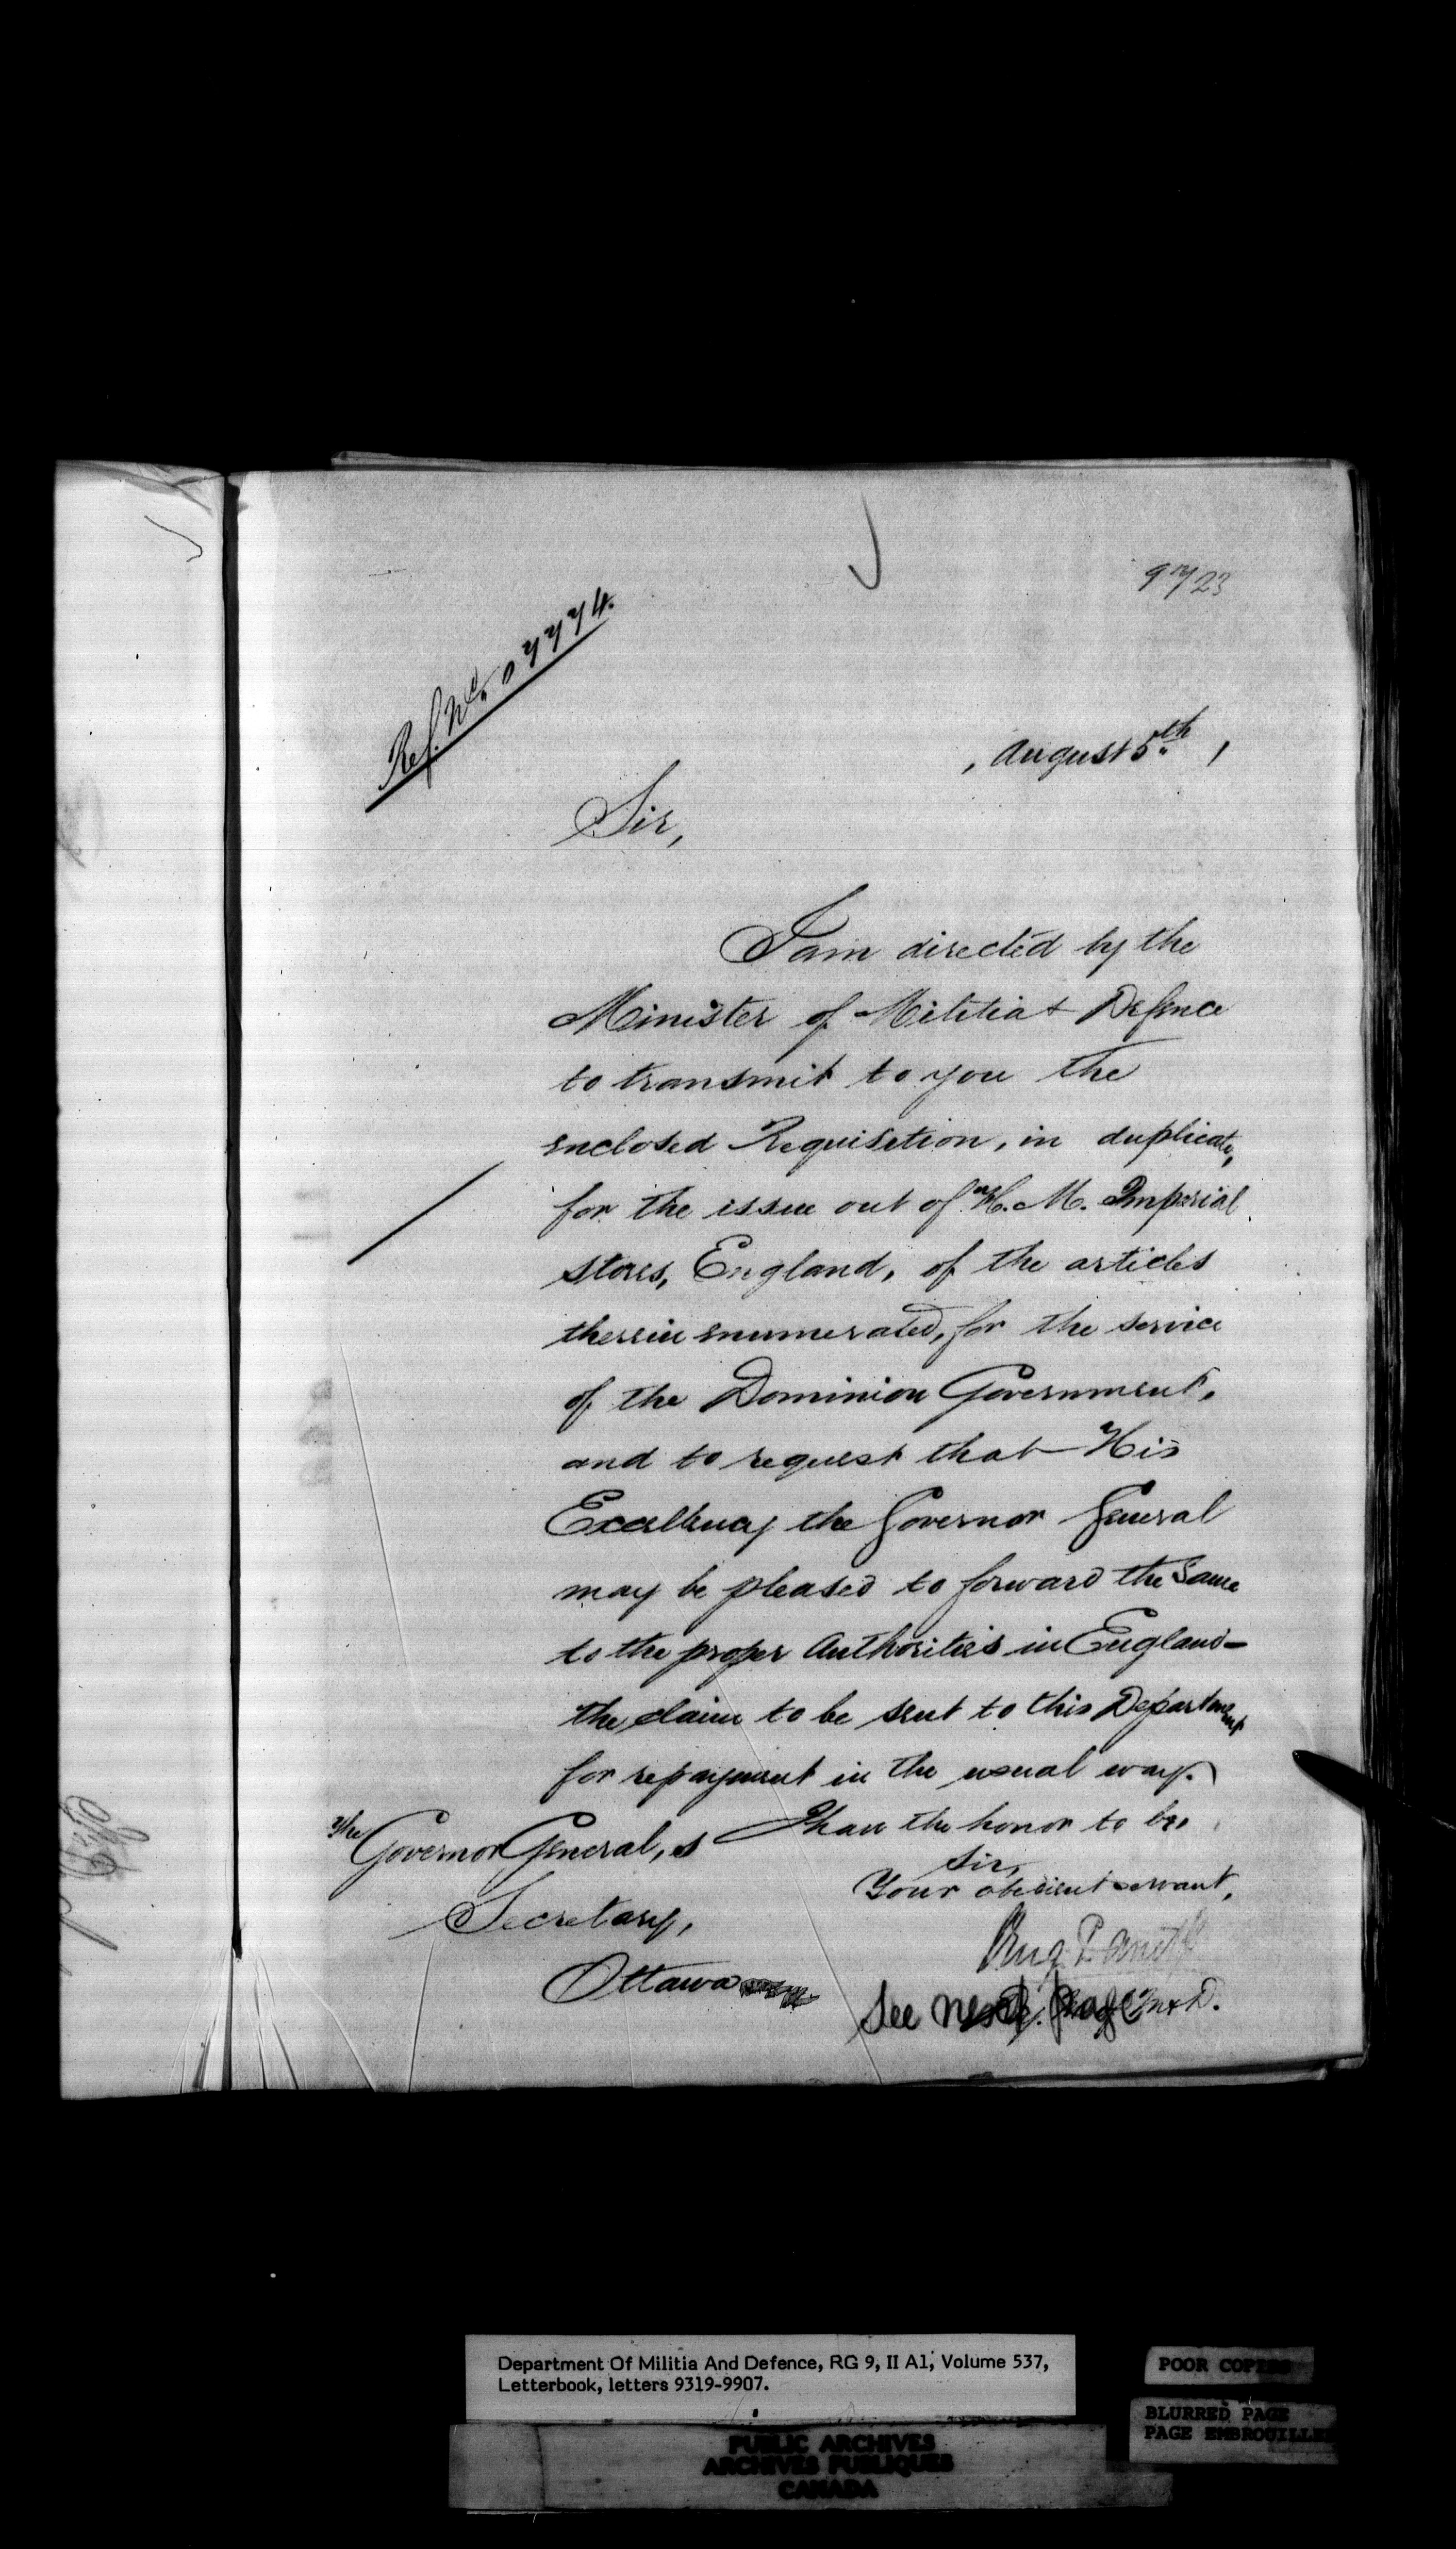 9723
Ref. No. 07774.
, August 5th,
Sir,
I am directed by the
Minister of Militia & Defence
to transmit to you the
enclosed Requisition, in duplicate,
for the issue out of H. M. Imperial
stores, England, of the articles
therein enumerated, for the service
of the Dominion Government,
and to request that His
Excellency the Governor General
may be pleased to forward the same
to the proper Authorities in England -
the claim to be sent to this Department
for repayment in the usual way.
I have the honor to be,
Sir,
Your obedient servant,
Eug. Panet
M & D.
See next page
The
Governor General,s
Secretary,
Ottawa
Department Of Militia And Defence, RG 9, II A1, Volume 537,
Letterbook, letters 9319-9907.
POOR COPIES
BLURRED PAGE
PAGE EMBROUILLEE
PUBLIC ARCHIVES
ARCHIVES PUBLIQUES
CANADA